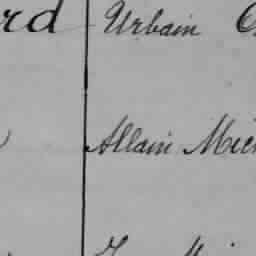 rd Urbain
Allain Mic